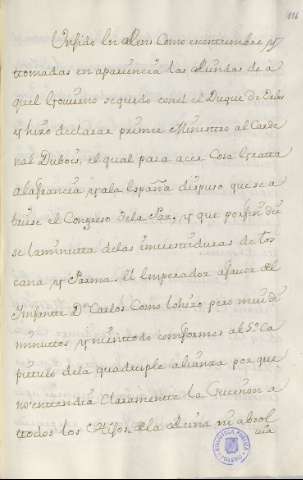 Unido los Reies como
tomadas en apariencia las Riendas de a
quel Govierno se quedo con el el Duque de
y hizo declarar primer Ministro al Carde
nal Dubois, el qual para acer cosa grata
a la francia y a la España dispuso que se a
briese el Congreso de la Paz, y que por fin die
se la minuta de las imbestiduras de tos
cana y Parma. el Emperador a favor del
Infante Dn Carlos como lo hizo pero mui di
minutos y no en todo comformes al 5º Ca
pitulo de la quadruple alianza por que
no entendia claramente la
todos los Hijos de la Reina ni absol
via